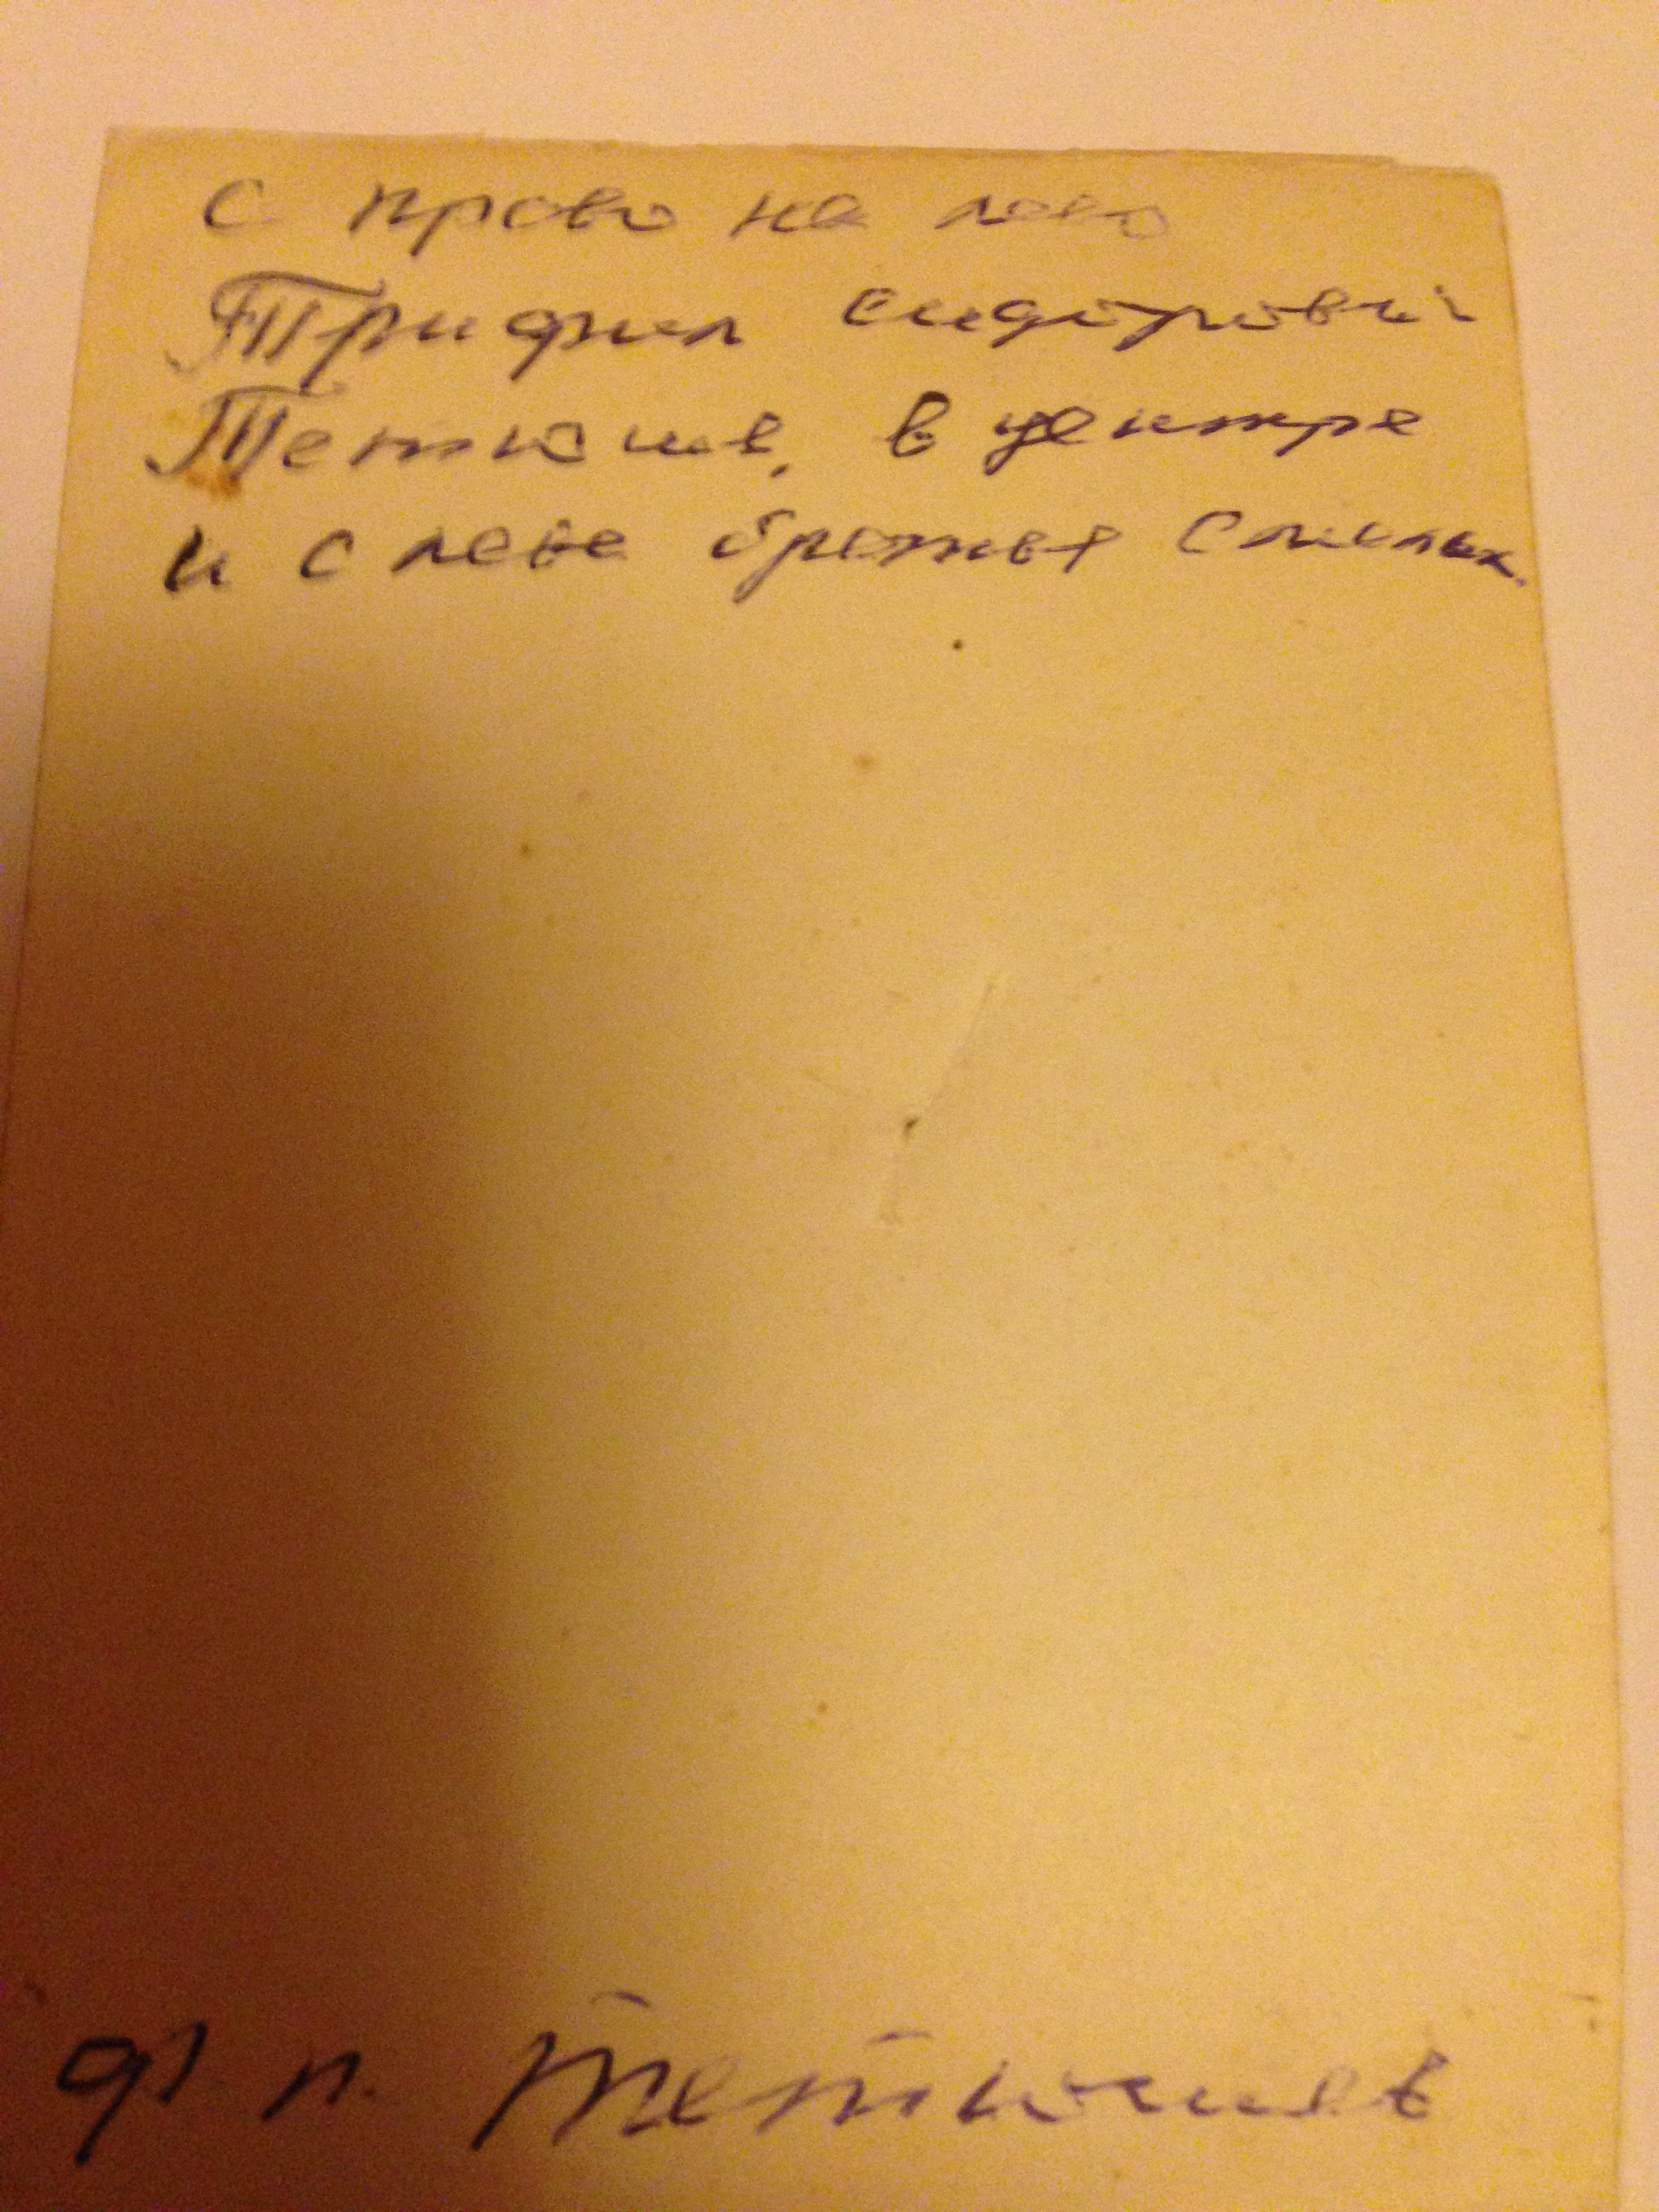 с право на лево
Трифил сидорович
Тетюшев, в центре
и с лева братья
ф. п. Тетюшев